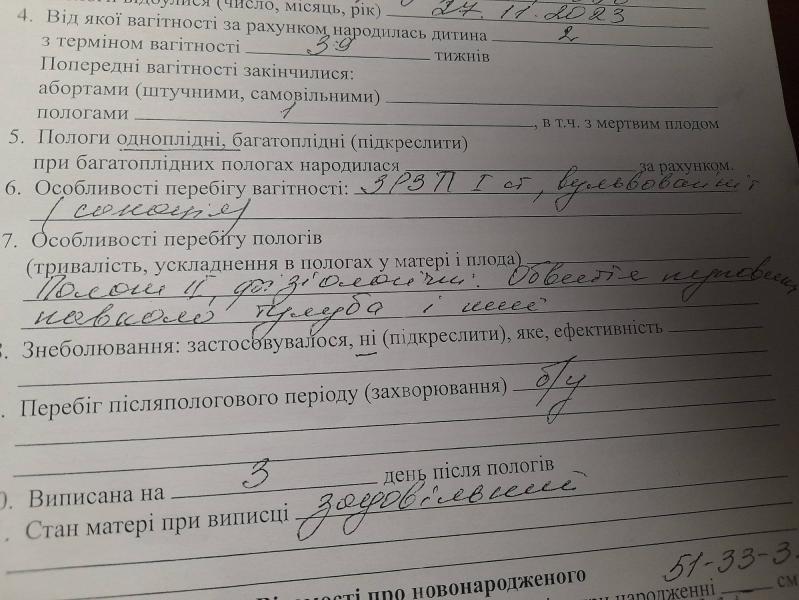 відбулися (число, місяць, рік) 27.11.2023
4. Від якої вагітності за рахунком народилась дитина 2
з терміном вагітності 39 тижнів
Попередні вагітності закінчилися:
абортами (штучними, самовільними)
пологами 1, в т.ч. з мертвим плодом
5. Пологи одноплідні, багатоплідні (підкреслити)
при багатоплідних пологах народилася за рахунком.
6. Особливості перебігу вагітності: ЗРЗП І ст, вульвовагініт
(санація)
7. Особливості перебігу пологів
(тривалість, ускладнення в пологах у матері і плода)
Пологи ІІ, фізіологічні. Обвиття пуповини
навколо тулуба і шиї
8. Знеболювання: застосовувалося, ні (підкреслити), яке, ефективність
. Перебіг післяпологового періоду (захворювання) б/у
0. Виписана на 3 день після пологів
. Стан матері при виписці задовільний
про новонародженого
51-33-3
народженні см